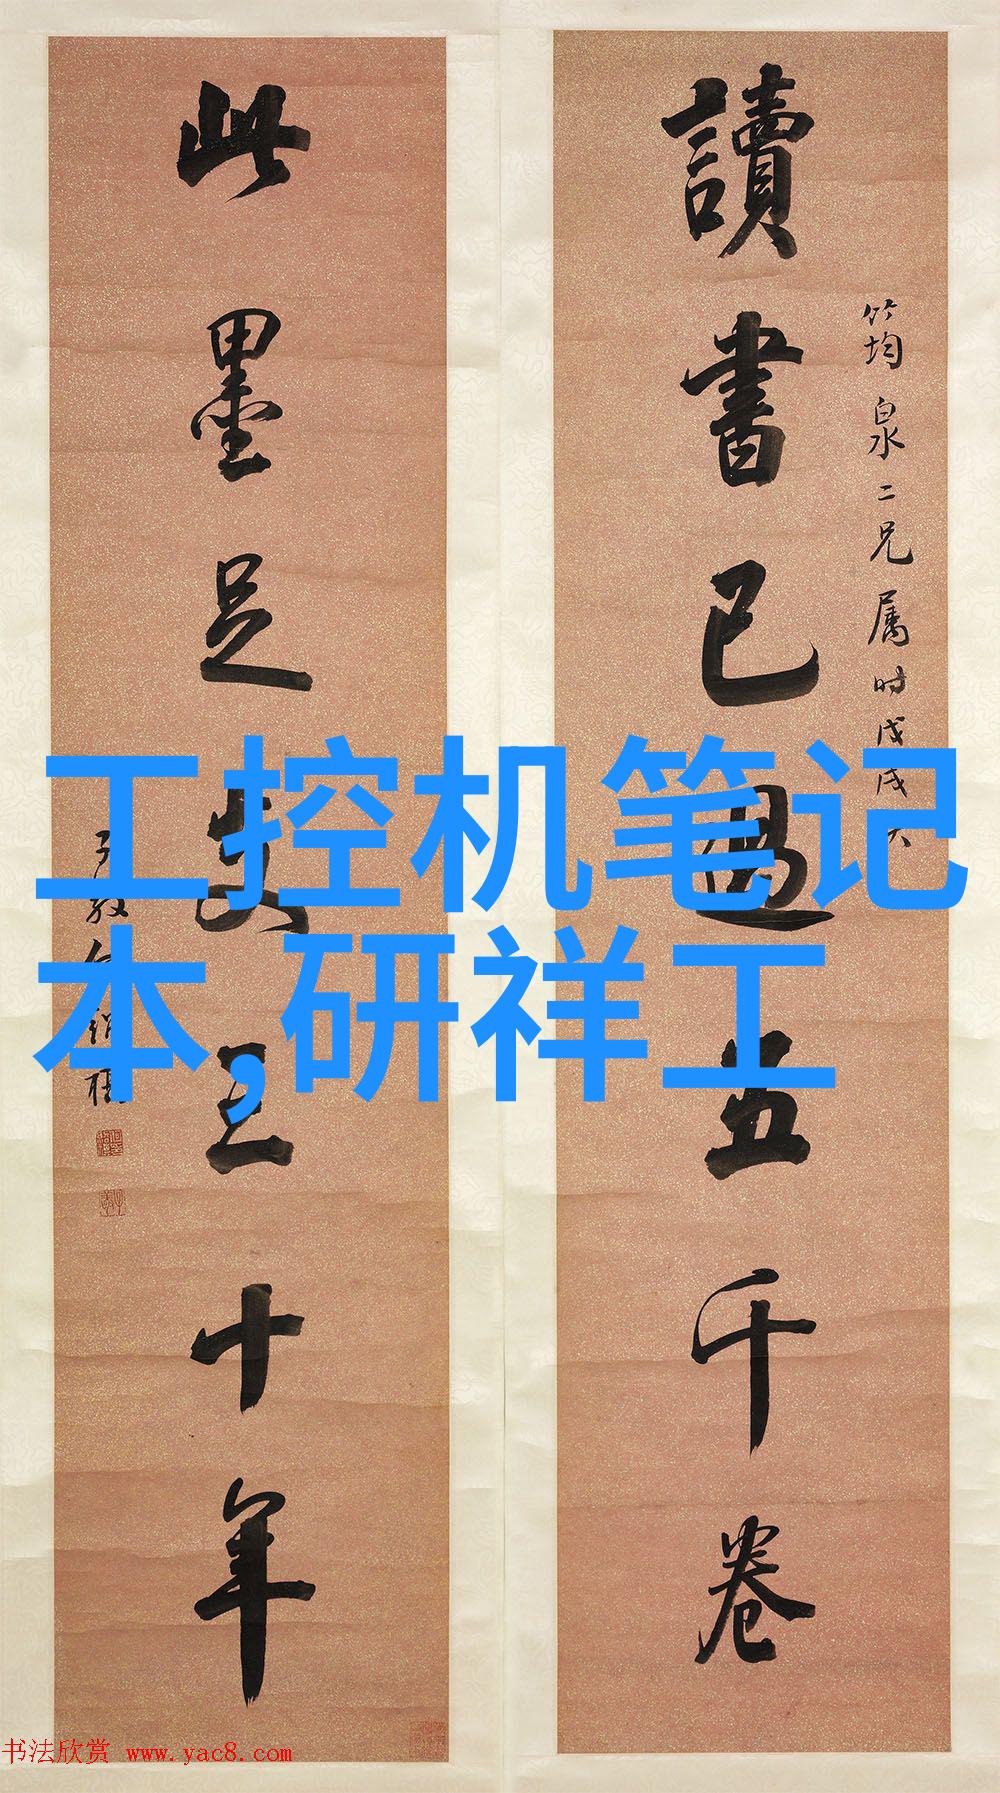 讀書已過五千卷
竹均泉二兄属时戊戌
此墨足支三十年
子敘何紹基
工控机笔记
本,研祥工
书法欣赏 www.yac8.com